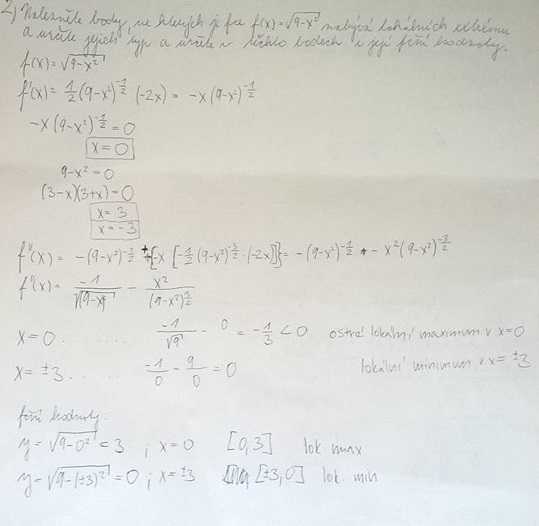 2) Nalezněte body, ve kterých je fce f(x)=√(9-x²) nabývá lokálních extrémů
a určete jejich typ a určete v těchto bodech i její fční hodnoty.
f(x)=√(9-x²)
f'(x)= 1/2 (9-x²)^(-1/2) (-2x) = -x(9-x²)^(-1/2)
-x(9-x²)^(-1/2) = 0
x=0
9-x²=0
(3-x)(3+x)=0
x=3
x=-3
f''(x)= -(9-x²)^(-1/2) + {-x [-1/2 (9-x²)^(-3/2) ·(-2x)]} = -(9-x²)^(-1/2) - x²(9-x²)^(-3/2)
f''(x)= -1/√(9-x²) - x²/(9-x²)^(3/2)
x=0 ........ -1/√9 - 0 = -1/3 < 0 ostré lokální maximum v x=0
x= ±3 ..... -1/0 - 9/0 = 0 lokální minimum v x= ±3
fční hodnoty.
y= √(9-0²) = 3 ; x=0 [0,3] lok max
y= √(9-(±3)²) = 0 ; x= ±3 [±3,0] lok. min